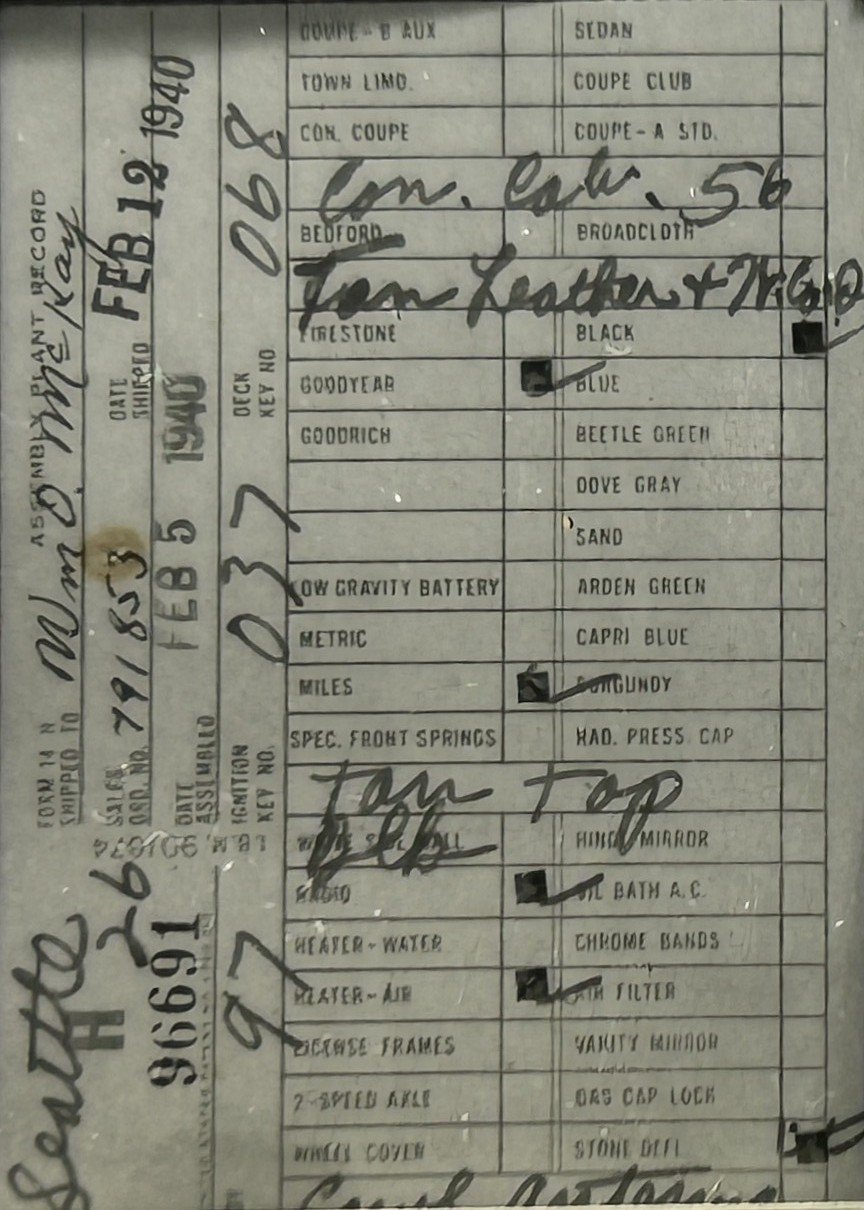 FORM 14 N ASSEMBLY PLANT RECORD
SHIPPED TO Wm O. McKay
SALES ORD. NO. 791853 DATE SHIPPED FEB 12 1940
DATE ASSEMBLED FEB 5 1940
IGNITION KEY NO. 037 DECK KEY NO 068
Seattle
H 26
96691
97
COUPE - B AUX SEDAN
TOWN LIMO. COUPE CLUB
CON. COUPE COUPE - A STD.
Con. Cab. 56
BEDFORD BROADCLOTH
Tan Leather + W.
FIRESTONE BLACK
GOODYEAR BLUE
GOODRICH BEETLE GREEN
DOVE GRAY
SAND
LOW GRAVITY BATTERY ARDEN GREEN
METRIC CAPRI BLUE
MILES BURGUNDY
SPEC. FRONT SPRINGS RAD. PRESS CAP
Tan Top
WHITE SIDE WALL HINGE MIRROR
RADIO OIL BATH A.C.
HEATER - WATER CHROME BANDS
HEATER - AIR AIR FILTER
LICENSE FRAMES VANITY MIRROR
2-SPEED AXLE GAS CAP LOCK
WHEEL COVER STONE DEFL